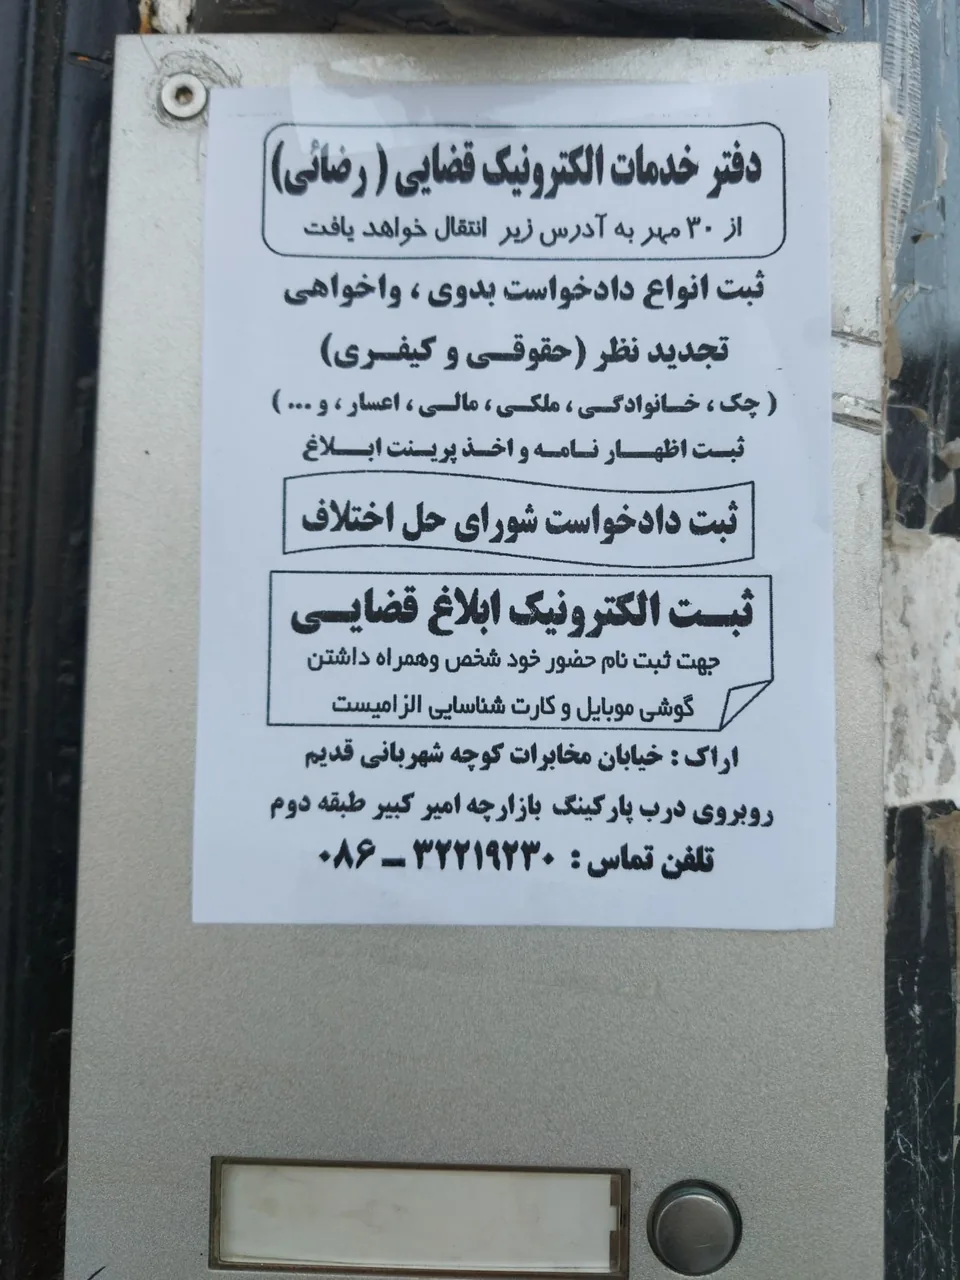 دفتر خدمات الکترونیک قضایی ( رضائی)
از ۳۰ مهر به آدرس زیر انتقال خواهد یافت
ثبت انواع دادخواست بدوی ، واخواهی
تجدید نظر (حقوقی و کیفری)
( چک ، خانوادگی ، ملکی ، مالی ، اعسار ، و ... )
ثبت اظهار نامه و اخذ پرینت ابلاغ
ثبت دادخواست شورای حل اختلاف
ثبت الکترونیک ابلاغ قضایی
جهت ثبت نام حضور خود شخص وهمراه داشتن
گوشی موبایل و کارت شناسایی الزامیست
اراک : خیابان مخابرات کوچه شهربانی قدیم
روبروی درب پارکینگ بازارچه امیر کبیر طبقه دوم
تلفن تماس : ۳۲۲۱۹۲۳۰ - ۰۸۶